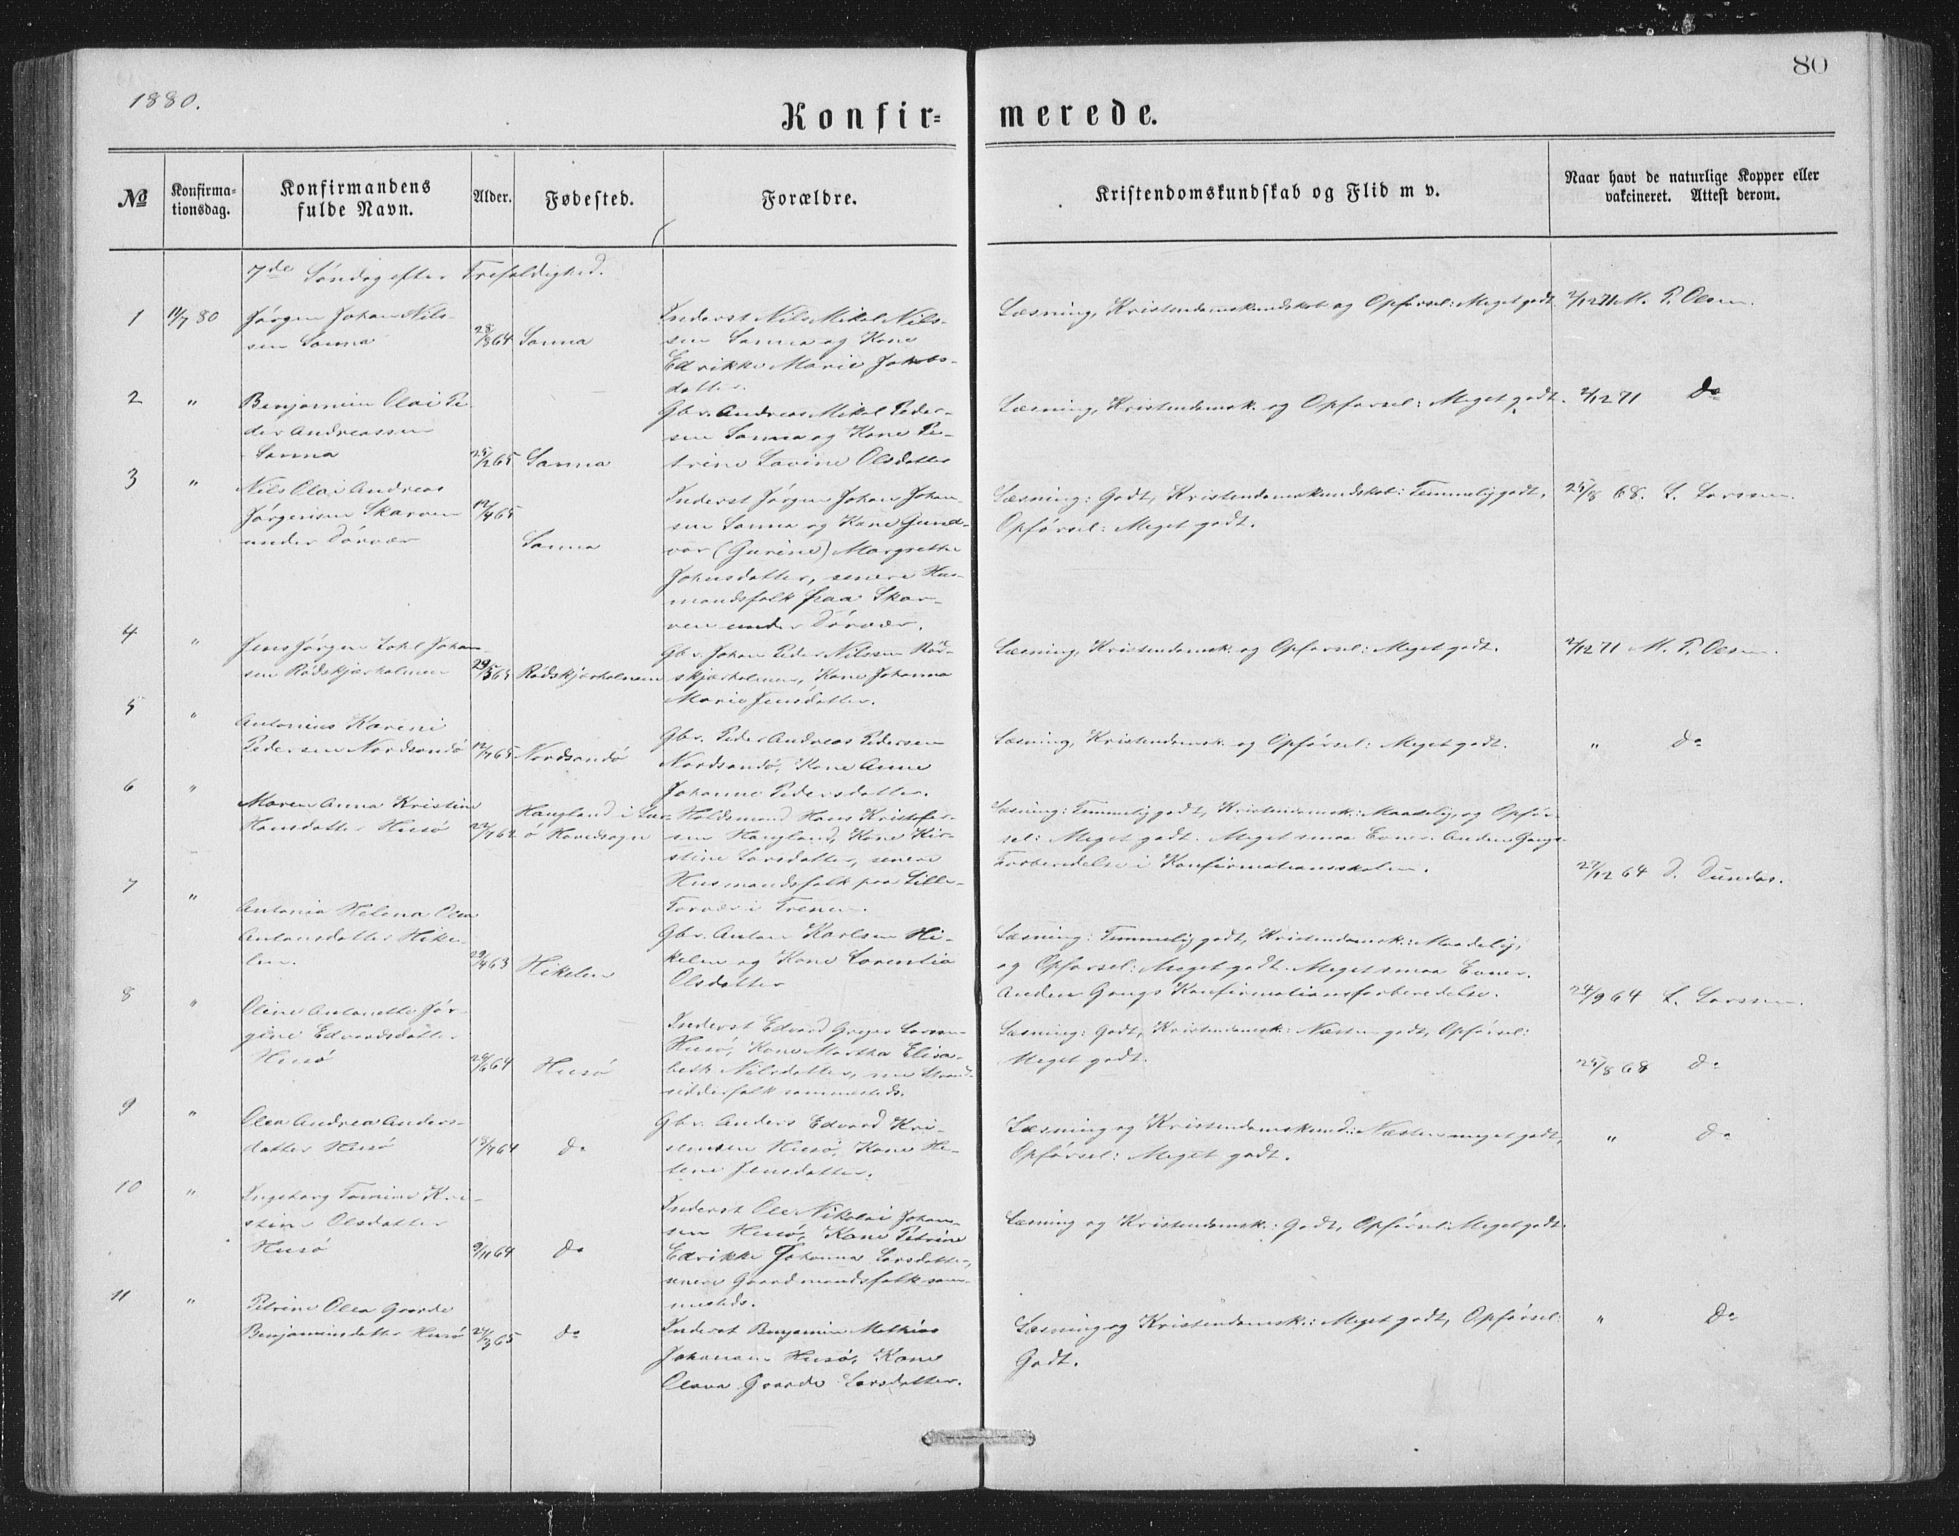 80
1880.
Konfir=
merede.
№
Konfirma-
tionsdag.
Konfirmandens
fulde Navn.
Alder.
Fødested.
Forældre.
Kristendomskundskab og Flid m v.
Naar havt de naturlige Kopper eller
vakcineret. Attest derom.
7de Söndag efter Trefoldighed.
1
11/7 80
Jörgen Johan Nils-
sen Sanna
28/8 64
Sanna
Inderst Nils Mikal Nils-
sen Sanna og Kone
Edrikke Marie Jakobs-
datter.
Læsning, Kristendomskundskab og Opförsel: Meget godt.
2/12 71 M. P. Olsen.
2
"
Benjamin Olai Pe-
der Andreassen
Sanna
25/2 65
Sanna
Gbr. Andreas Mikal Peder-
sen Sanna og Kone Pe-
trine Lovine Olsdatter
Læsning, Kristendomsk. og Opförsel: Meget godt.
2/12 71 do
3
"
Nils Olai Andreas
Jörgensen Skarven
under Dörvær
12/4 65
Sanna
Inderst Jörgen Johan Johan-
sen Sanna og Kone Gund-
vor (Gurine) Margrethe
Johnsdatter, senere Hus-
mandsfolk paa Skar-
ven under Dörvær.
Læsning: Godt, Kristendomskundskab: Temmelig godt,
Opförsel: Meget godt.
25/8 68. L. Larssen.
4
"
Jens Jörgen Zahl Johan-
sen Rödskjærholmen
29/5 65
Rödskjærholmen
Gbr. Johan Peder Nilssen Röd-
skjærholmen, Kone Johanna
Marie Jensdatter.
Læsning, Kristendomsk. og Opförsel: Meget godt.
2/12 71 M. P. Olsen.
5
"
Antonius Kareni
Pedersen Nordsandö
12/7 65
Nordsandö
Gbr. Peder Andreas Pedersen
Nordsandö, Kone Anne
Johanne Pedersdatter.
Læsning, Kristendomsk. og Opförsel: Meget godt.
" do
6
"
Maren Anna Kristine
Hansdatter Husö
22/7 62
Haugland i Lur-
ö Hovedsogn
Holdsmand Hans Kristofer-
sen Haugland, Kone Kir-
stine Larsdatter, senere
Husmandsfolk paa Lille-
Torvær i Trænen.
Læsning: Temmelig godt, Kristendomsk.: Maadelig, og Opför-
sel: Meget godt. Meget smaa Evner. Anden Gangs
Forberedelse i Konfirmationsskolen.
27/12 64 D. Dundas.
7
"
Antonia Helena Olea
Antonsdatter Hike-
len.
29/4 63
Hikelen
Gbr. Anton Karlsen Hi-
kelen og Kone Lorentia
Olsdatter
Læsning: Temmelig godt, Kristendomsk.: Maadelig,
og Opförsel: Meget godt. Meget smaa Evner.
Anden Gangs Konfirmationsforberedelse.
24/9 64 L. Larssen.
8
"
Oline Antonette Jör-
gine Edvardsdatter
Husö
26/6 64
Husö
Inderst Edvard Greger Larssen
Husö, Kone Martha Elisa-
beth Nilsdatter, nu Strand-
sidderfolk sammesteds.
Læsning: Godt, Kristendomsk.: Næsten godt, Opförsel:
Meget godt.
25/8 68 do
9
"
Olea Andrea Anders-
datter Husö
18/7 64
do
Gbr. Anders Edvard Kri-
stensen Husö, Kone He-
lene Jensdatter.
Læsning og Kristendomskund.: Næsten meget godt,
Opförsel: Meget godt.
" do
10
"
Ingeborg Tomine Kri-
stine Olsdatter
Husö
9/11 64
do
Inderst Ole Nikolai Johan-
sen Husö, Kone Petrine
Edrikke Johanna Larsdatter,
senere Gaardmandsfolk sam-
mesteds.
Læsning og Kristendomsk.: Godt, Opförsel: Meget godt.
11
"
Petrine Olea Gaarde
Benjaminsdatter Husö
27/3 65
do
Inderst Benjamin Mathias
Johansen Husö, Kone
Olava Gaarde Larsdatter.
Læsning og Kristendomsk.: Meget godt, Opförsel:
Godt.
" do